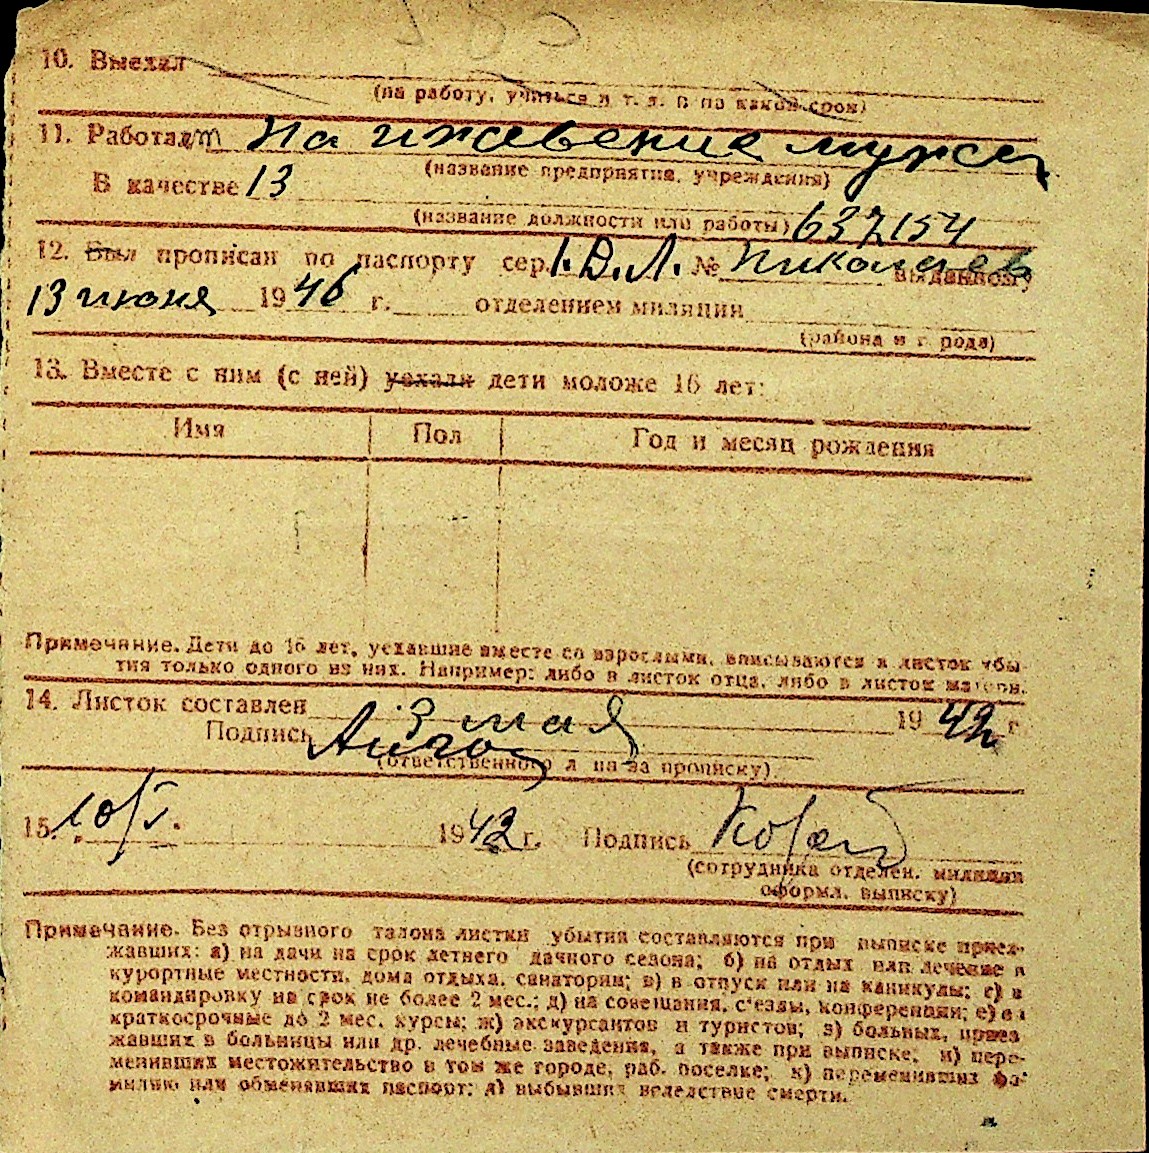 10. Выехал
(на работу, учиться и т. д. и на какой срок)
11. Работает На ижевение мужа
(название предприятия, учреждения)
В качестве 13
(название должности или работы) 637154
12. Был прописан по паспорту сер. I. Д. Л. № Николаев выданному
13 июня 1946 г. отделением милиции
(района и города)
13. Вместе с ним (с ней) уехали дети моложе 16 лет:
Имя Пол Год и месяц рождения
Примечание. Дети до 16 лет, уехавшие вместе со взрослыми, вписываются в листок убы-
тия только одного из них. Например: либо в листок отца, либо в листок матери.
14. Листок составлен 3 мая 1942 г.
Подпись
(ответственного лица за прописку)
15. 10/V. 1942 г. Подпись
(сотрудника отделен. милиции
оформл. выписку)
Примечание. Без отрывного талона листки убытия составляются при выписке приез-
жавших: а) на дачи на срок летнего дачного сезона; б) на отдых или лечение в
курортные местности, дома отдыха, санатории; в) в отпуск или на каникулы; г) в
командировку на срок не более 2 мес.; д) на совещания, с'езды, конференции; е) на
краткосрочные до 2 мес. курсы; ж) экскурсантов и туристов; з) больных, приез
жавших в больницы или др. лечебные заведения, а также при выписке; и) пере-
менивших местожительство в том же городе, раб. поселке; к) переменивших фа-
милию или обменявших паспорт; л) выбывших вследствие смерти.